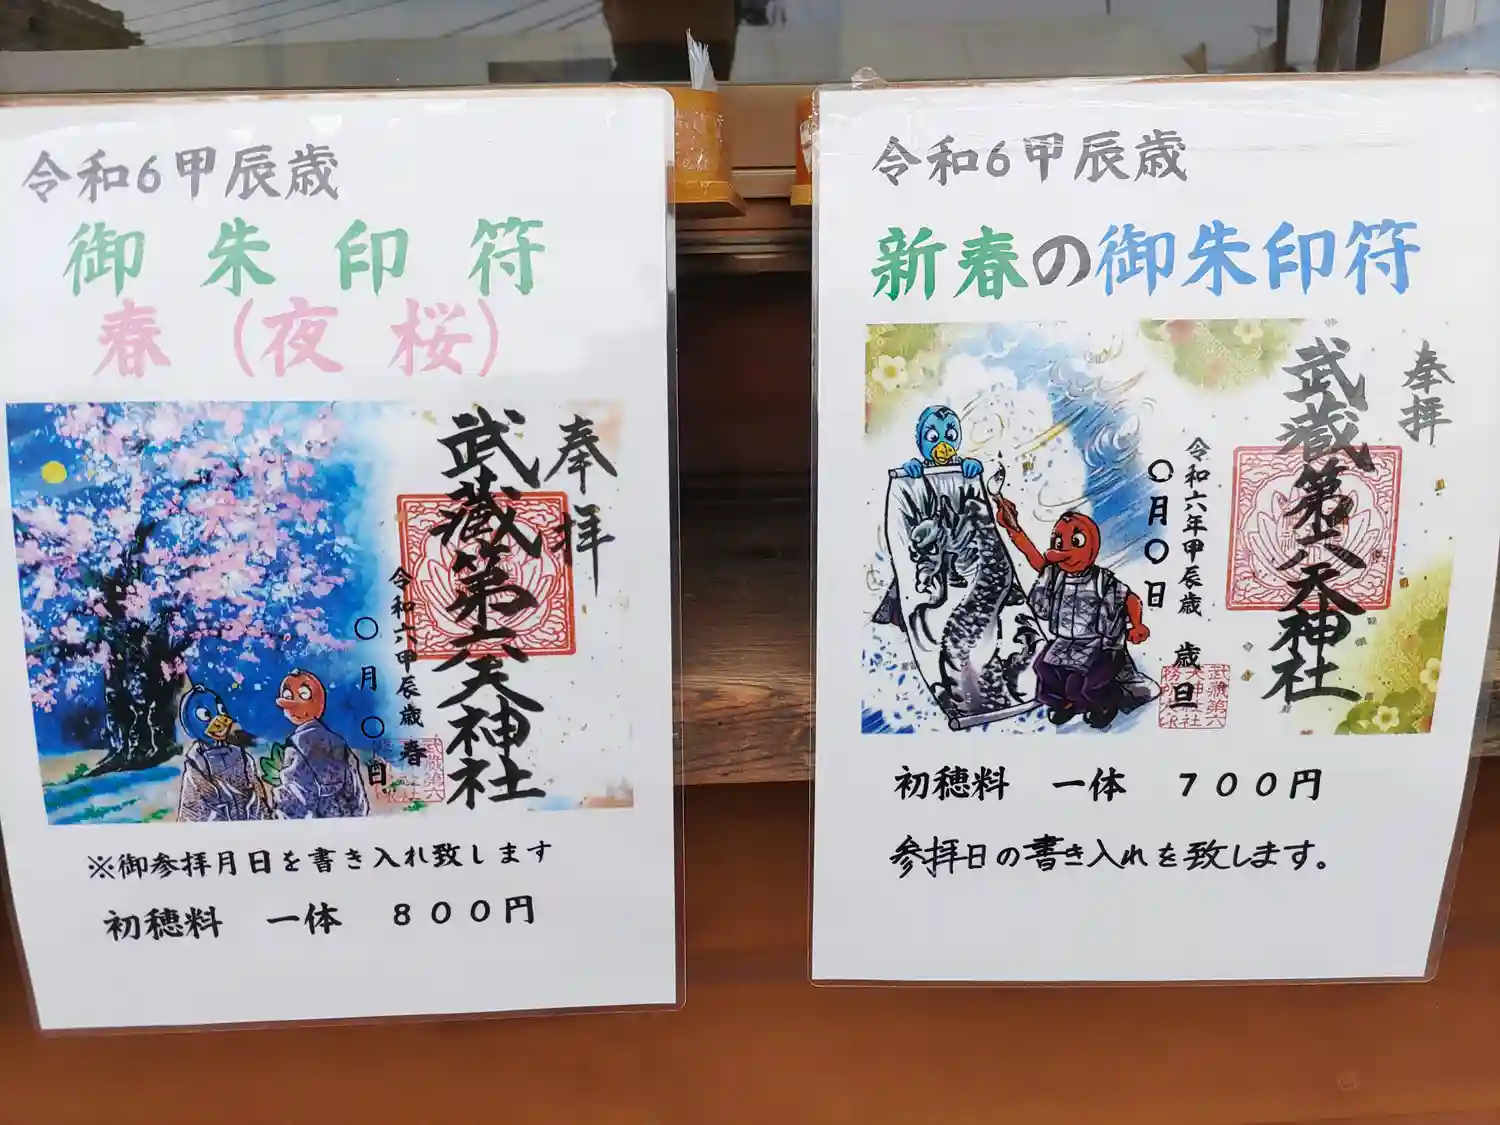 令和6甲辰歳
御朱印符
春（夜桜）
奉拝
武蔵第六天神社
令和六甲辰歳 春
〇月〇日
※御参拝月日を書き入れ致します
初穂料　一体　８００円
令和6甲辰歳
新春の御朱印符
奉拝
武蔵第六天神社
令和六年甲辰歳 歳旦
〇月〇日
初穂料　一体　７００円
参拝日の書き入れを致します。